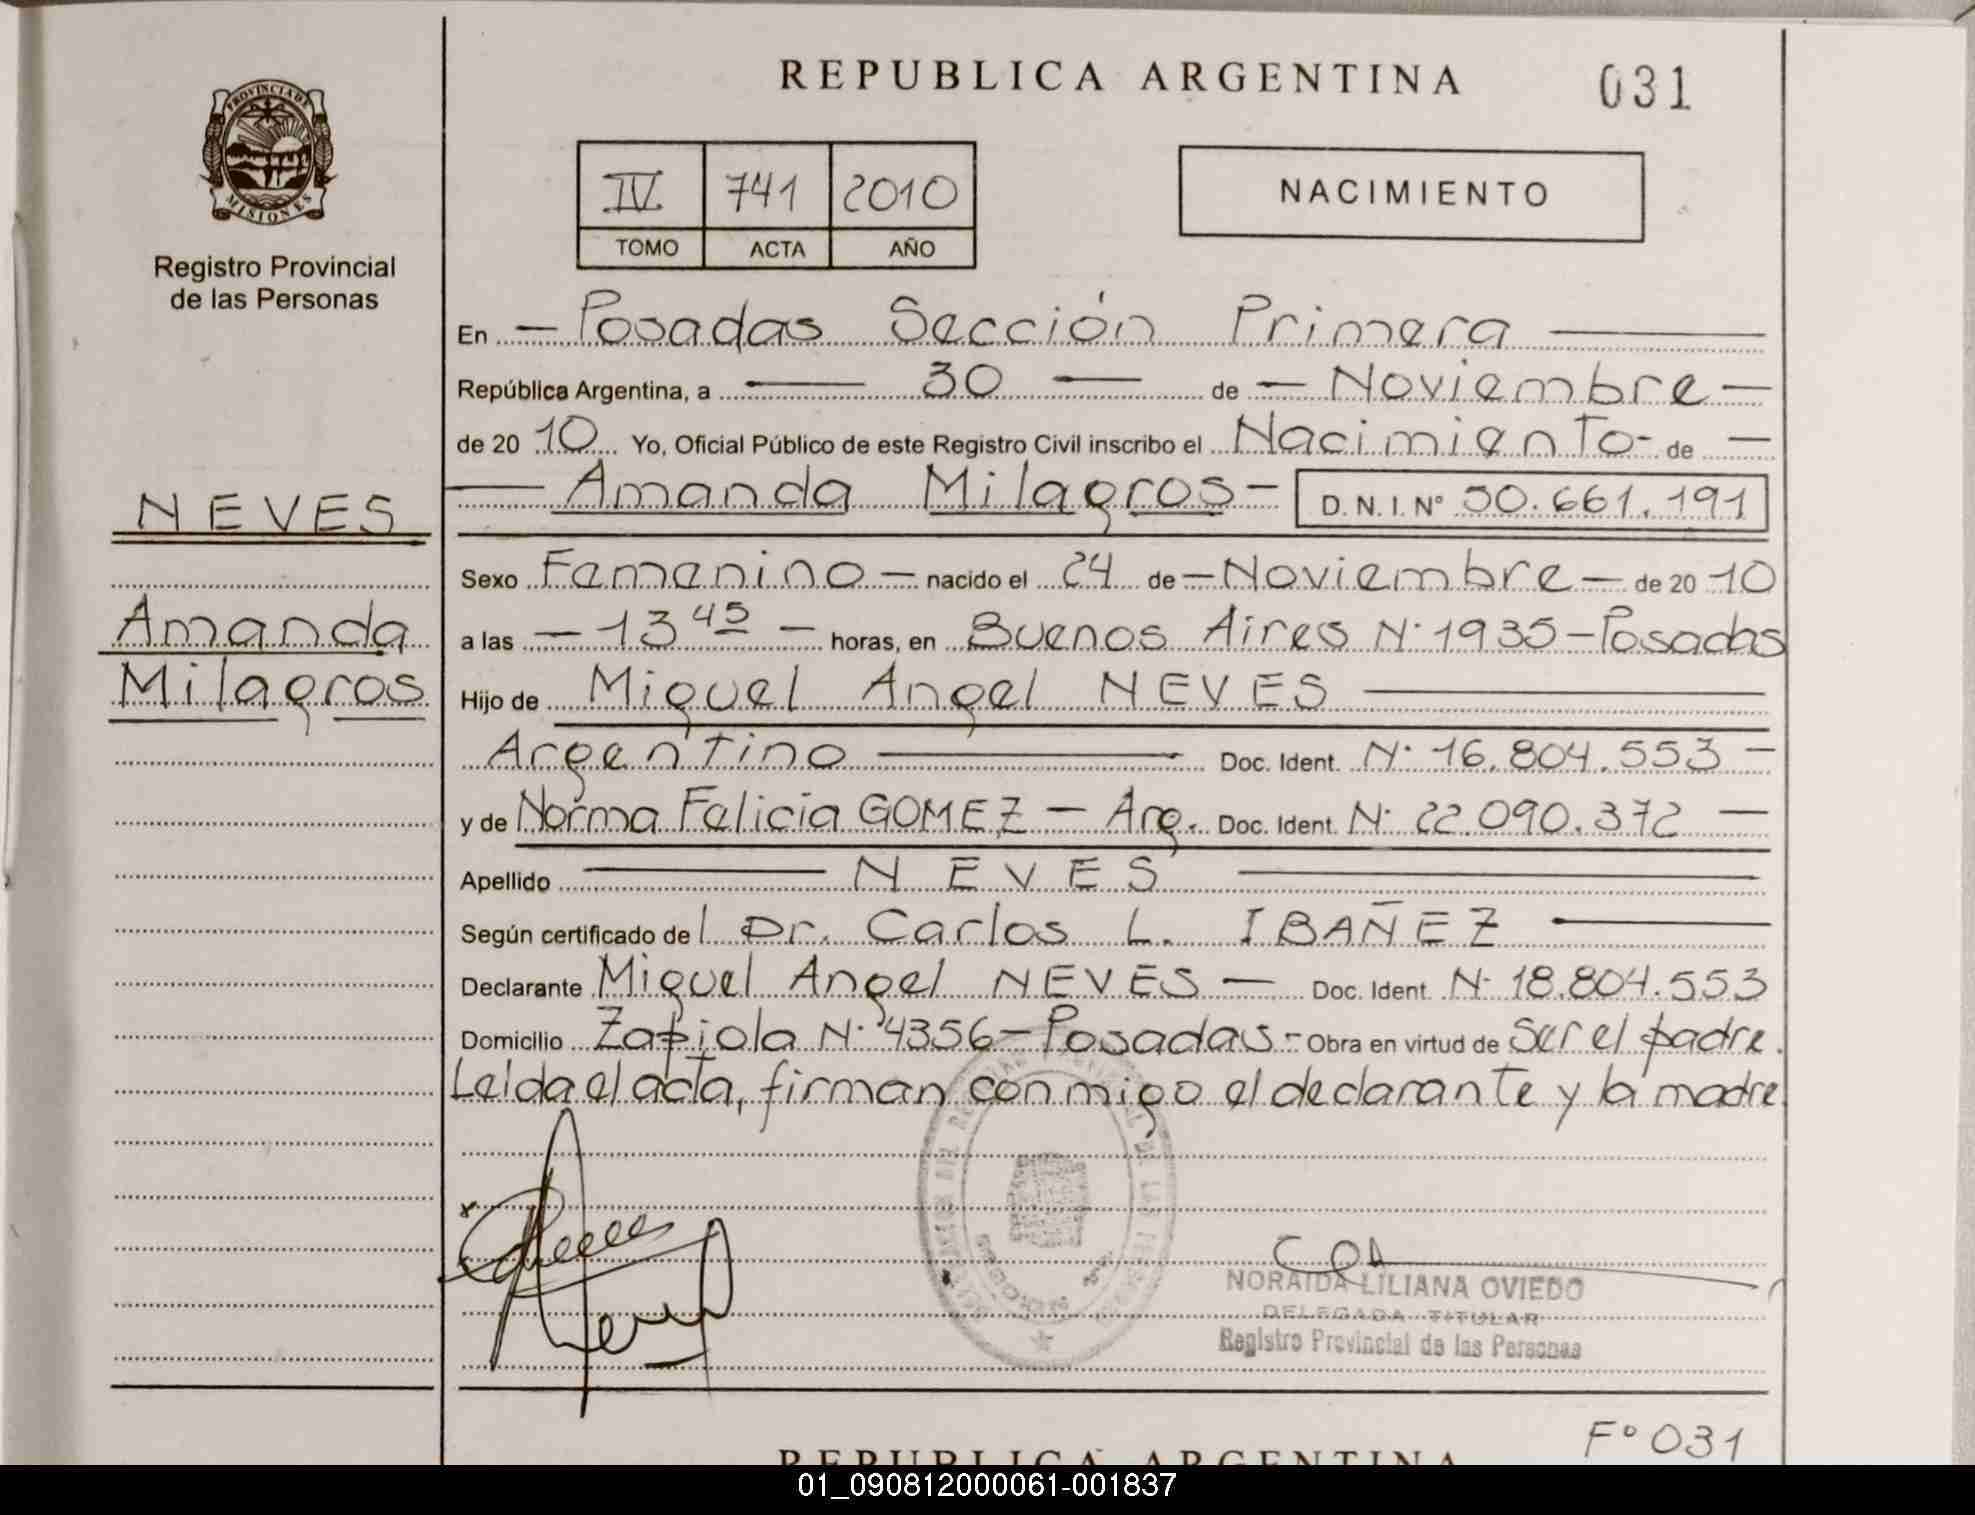 REPUBLICA ARGENTINA 031
PROVINCIA DE
MISIONES
Registro Provincial
de las Personas
IV 741 2010
TOMO ACTA AÑO
NACIMIENTO
En — Posadas Sección Primera —
República Argentina, a — 30 — de — Noviembre —
de 20 10 Yo, Oficial Público de este Registro Civil inscribo el Nacimiento - de —
— Amanda Milagros - D. N. I. Nº 50.661.191
NEVES
Amanda
Milagros
Sexo Femenino — nacido el 24 de — Noviembre — de 20 10
a las — 13 45 — horas, en Buenos Aires N· 1935 - Posadas
Hijo de Miguel Angel NEVES —
Argentino — Doc. Ident. N· 16.804.553 —
y de Norma Felicia GOMEZ — Arg. Doc. Ident. N· 22.090.372 —
Apellido — NEVES —
Según certificado del Dr. Carlos L. IBAÑEZ —
Declarante Miguel Angel NEVES — Doc. Ident. N· 18.804.553
Domicilio Zapiola N· 4356 - Posadas - Obra en virtud de Ser el padre.
Leída el acta, firman conmigo el declarante y la madre.
x
NORAIDA LILIANA OVIEDO
DELEGADA TITULAR
Registro Provincial de las Personas
Fº 031
REPUBLICA ARGENTINA
01_090812000061-001837